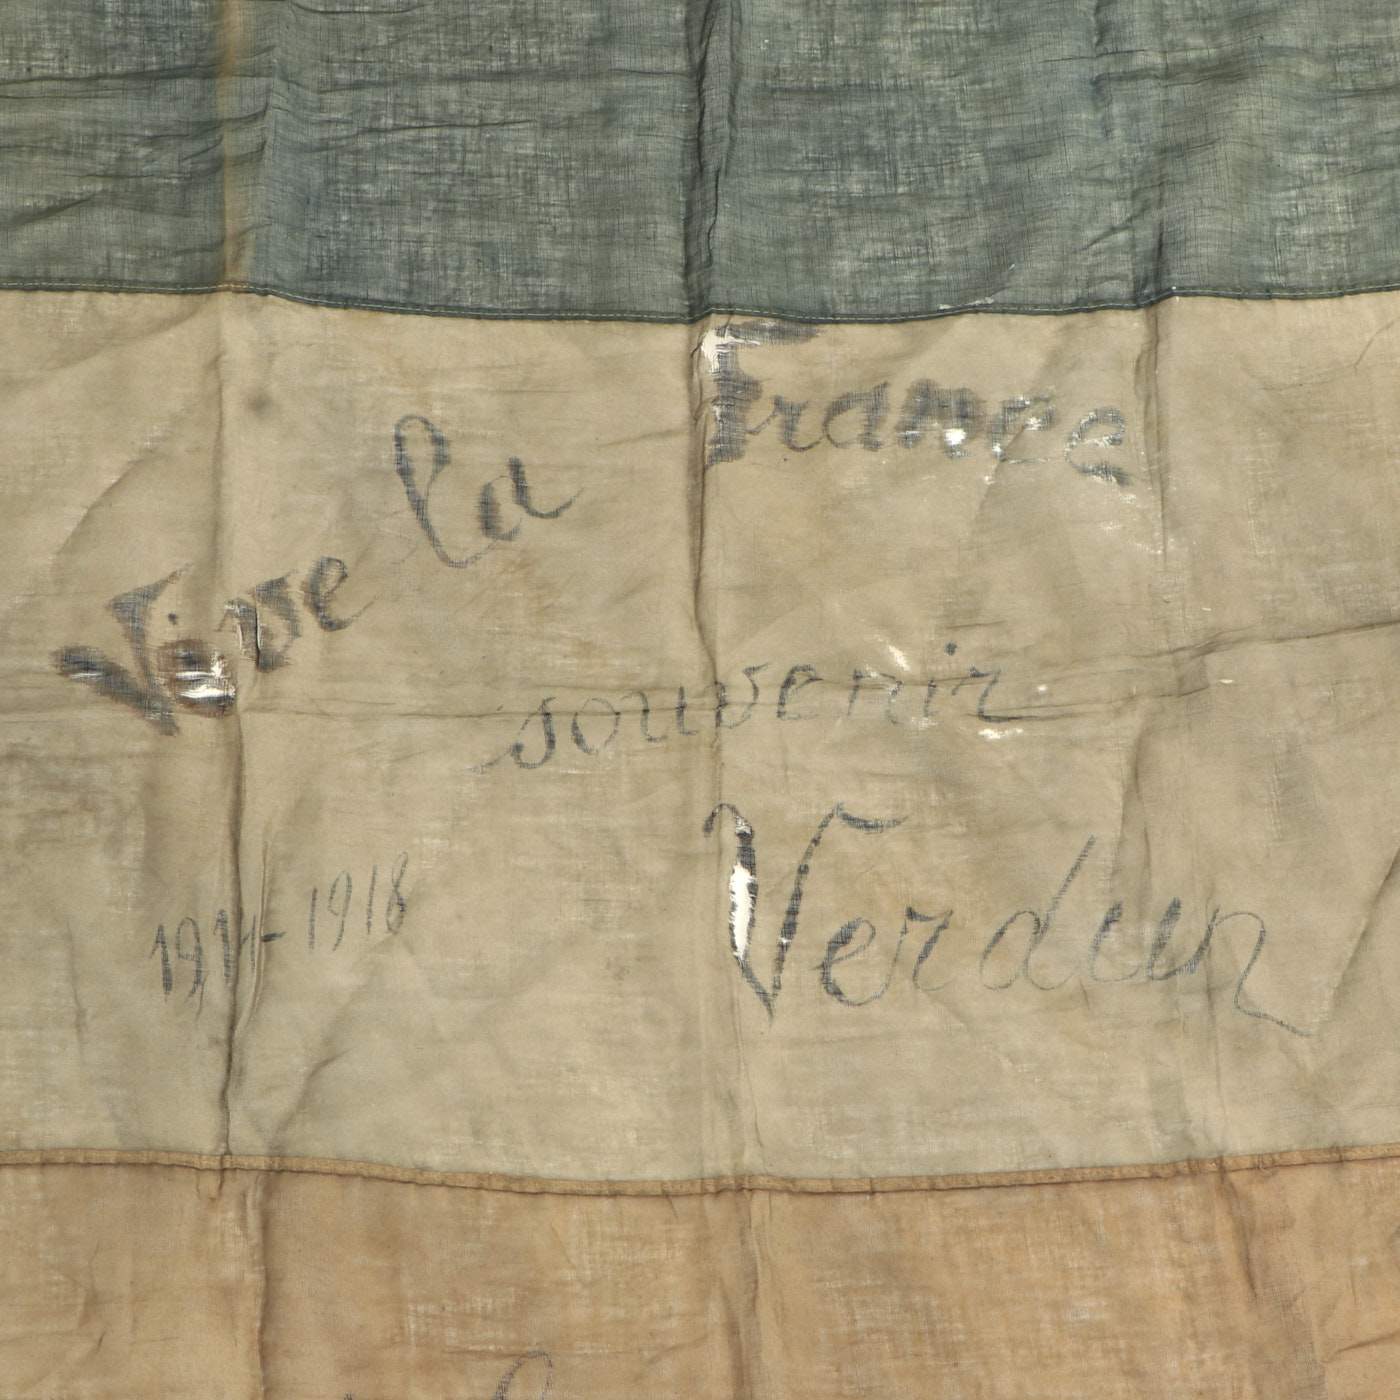 Vive la France
souvenir
Verdun
1914-1918